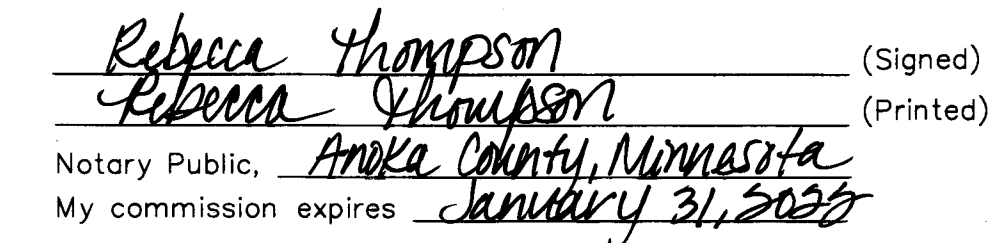 Rebecca Thompson (Signed)
Rebecca Thompson (Printed)
Notary Public, Anoka County, Minnesota
My commission expires January 31, 2022